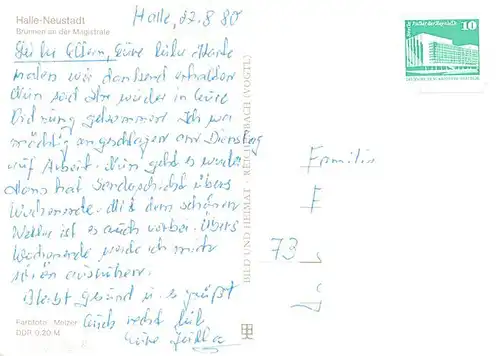 Halle-Neustadt
Brunnen an der Magistrale
Halle, 27.8.80
Eure liebe Karte
haben wir dankend erhalten
Nun seid Ihr wieder in Eure
Ordnung gekommen. Ich war
mächtig angeschlagen am Dienstag
auf Arbeit. Nun geht es wieder
Hans hat Sonderschicht übers
Wochenende. Mit dem schönen
Wetter ist es auch vorbei. Übers
Wochenende werde ich mich
ausruhen.
Bleibt gesund u. es grüßt
Euch recht lieb
Eure
Farbfoto: Melzer
DDR 0,20 M
BILD UND HEIMAT · REICHENBACH (VOGTL)
10
Familie
F
73